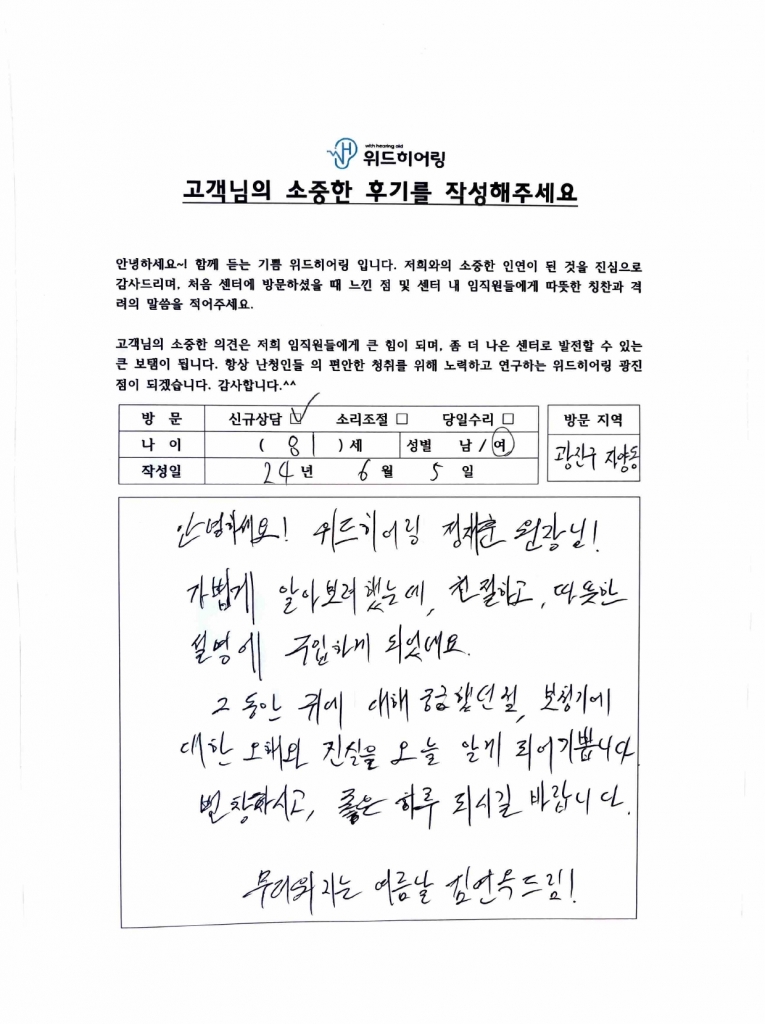 with hearing aid
위드히어링
고객님의 소중한 후기를 작성해주세요
안녕하세요~! 함께 듣는 기쁨 위드히어링 입니다. 저희와의 소중한 인연이 된 것을 진심으로
감사드리며, 처음 센터에 방문하셨을 때 느낀 점 및 센터 내 임직원들에게 따뜻한 칭찬과 격
려의 말씀을 적어주세요.
고객님의 소중한 의견은 저희 임직원들에게 큰 힘이 되며, 좀 더 나은 센터로 발전할 수 있는
큰 보탬이 됩니다. 항상 난청인들 의 편안한 청취를 위해 노력하고 연구하는 위드히어링 광진
점이 되겠습니다. 감사합니다.^^
방 문 신규상담 ☑ 소리조절 □ 당일수리 □ 방문 지역
나 이 ( 81 ) 세 성별 남 / 여 광진구 자양동
작성일 24 년 6 월 5 일
안녕하세요! 위드히어링 정재훈 원장님!
가볍게 알아보려했는데, 친절하고, 따뜻한
설명에 구입하게 되었네요.
그동안 귀에 대해 궁금했던점, 보청기에
대한 오해와 진실을 오늘 알게 되어 기쁩니다
번창하시고, 좋은 하루 되시길 바랍니다.
무더워지는 여름날 김연옥드림!